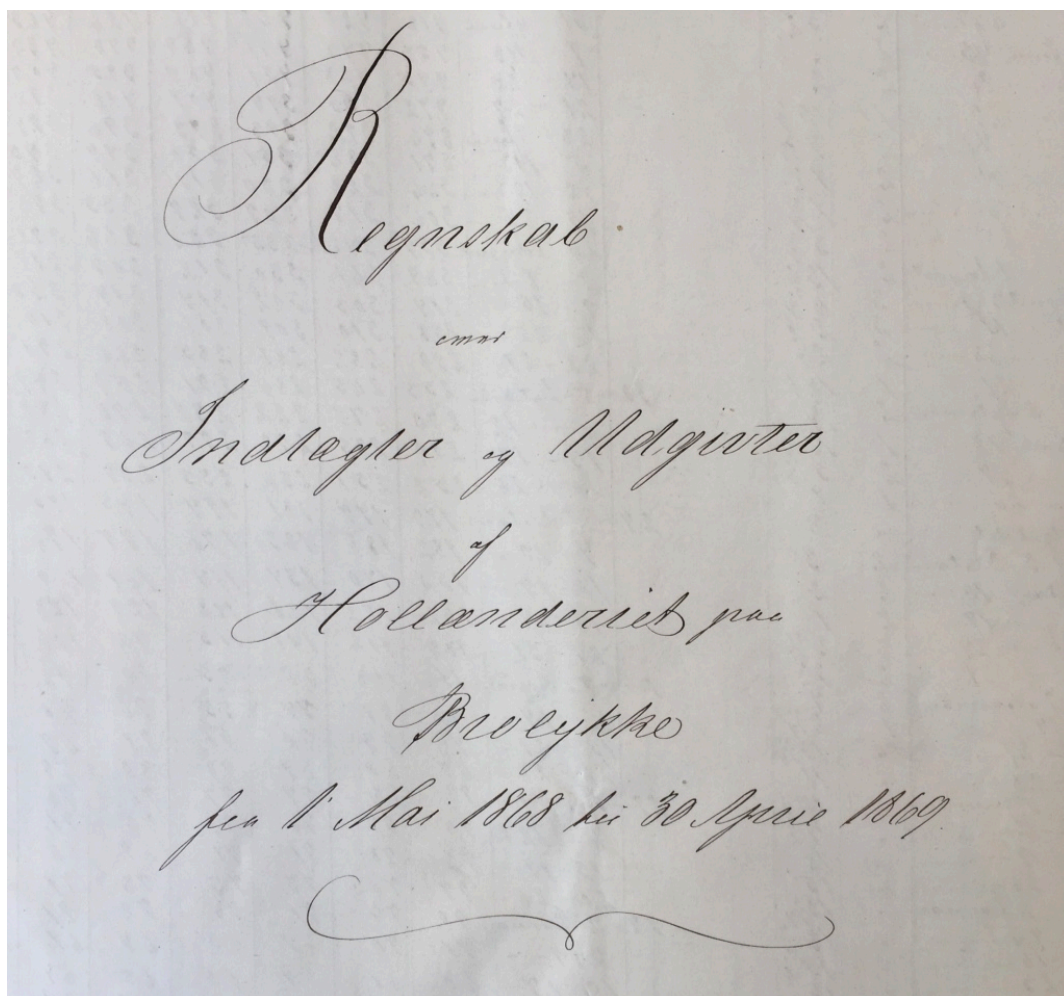 Regnskab
over
Indtægter og Udgivter
af
Hollænderiet paa
Broløkke
fra 1' Mai 1868 til 30 April 1869.